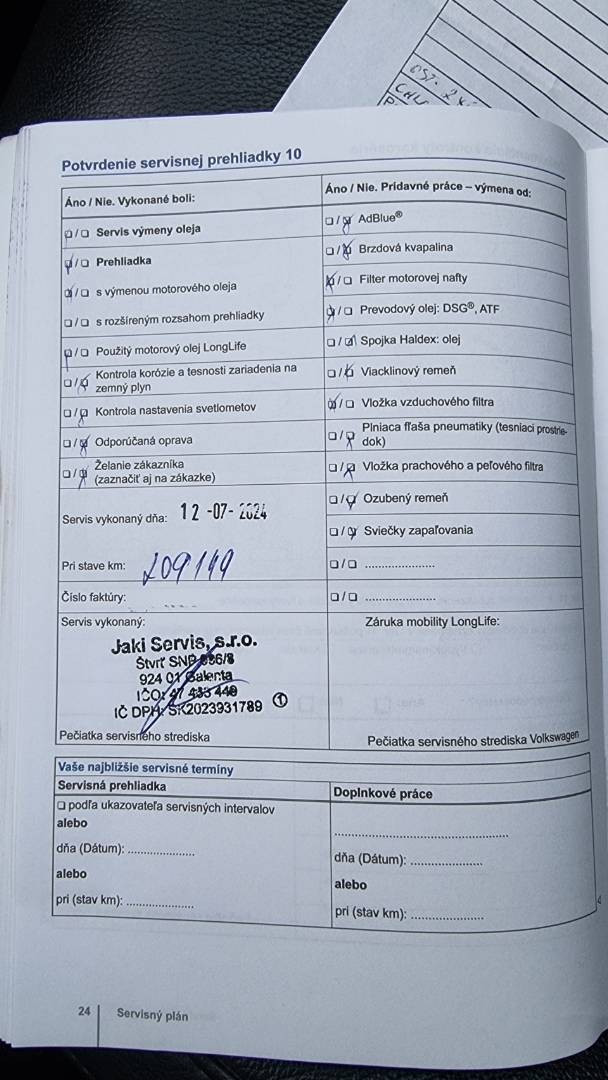 Potvrdenie servisnej prehliadky 10
Áno / Nie. Vykonané boli:
❑ / ❑ Servis výmeny oleja
❑ / ❑ Prehliadka
❑ / ❑ s výmenou motorového oleja
❑ / ❑ s rozšíreným rozsahom prehliadky
❑ / ❑ Použitý motorový olej LongLife
❑ / ❑ Kontrola korózie a tesnosti zariadenia na
zemný plyn
❑ / ❑ Kontrola nastavenia svetlometov
❑ / ❑ Odporúčaná oprava
❑ / ❑ Želanie zákazníka
(zaznačiť aj na zákazke)
Servis vykonaný dňa: 12 -07- 2024
Pri stave km: 209149
Číslo faktúry:
Servis vykonaný:
Jaki Servis, s.r.o.
Štvrť SNP 996/8
924 01 Galanta
IČO: 47 433 440
IČ DPH: SK2023931789 1
Pečiatka servisného strediska
Áno / Nie. Prídavné práce – výmena od:
❑ / ❑ AdBlue®
❑ / ❑ Brzdová kvapalina
❑ / ❑ Filter motorovej nafty
❑ / ❑ Prevodový olej: DSG®, ATF
❑ / ❑ Spojka Haldex: olej
❑ / ❑ Viacklinový remeň
❑ / ❑ Vložka vzduchového filtra
❑ / ❑ Plniaca fľaša pneumatiky (tesniaci prostrie-
dok)
❑ / ❑ Vložka prachového a peľového filtra
❑ / ❑ Ozubený remeň
❑ / ❑ Sviečky zapaľovania
❑ / ❑ ....................
❑ / ❑ ....................
Záruka mobility LongLife:
Pečiatka servisného strediska Volkswagen
Vaše najbližšie servisné termíny
Servisná prehliadka
❑ podľa ukazovateľa servisných intervalov
alebo
dňa (Dátum): ....................
alebo
pri (stav km): ....................
Doplnkové práce
..................................................
dňa (Dátum): ....................
alebo
pri (stav km): ....................
24 Servisný plán